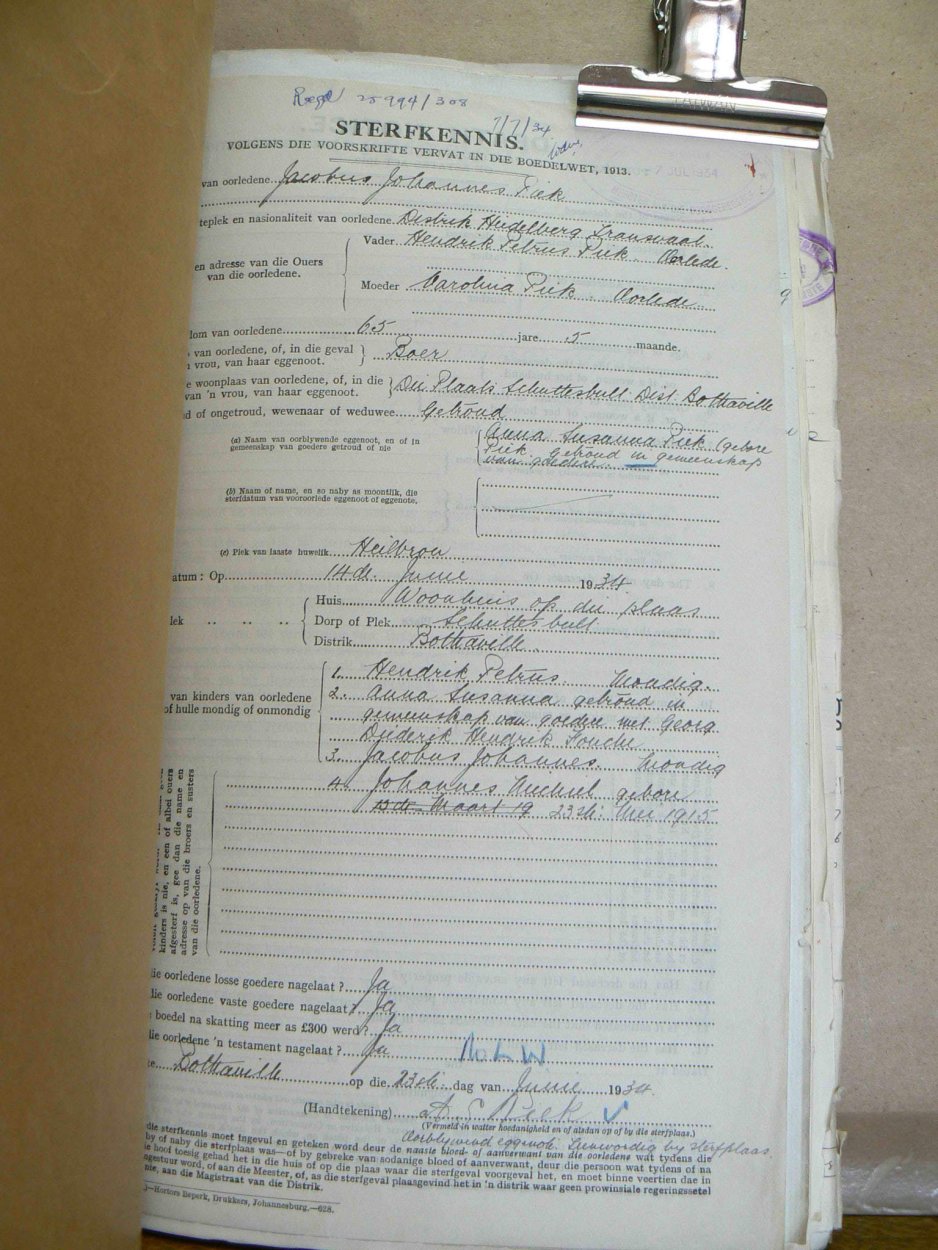 25994/308
7/7/34
TAIWAN
STERFKENNIS.
VOLGENS DIE VOORSKRIFTE VERVAT IN DIE BOEDELWET, 1913.
7 JUL 1934
van oorledene Jacobus Johannes Piek
teplek en nasionaliteit van oorledene. Distrik Heidelberg Transvaal.
en adresse van die Ouers van die oorledene.
Vader Hendrik Petrus Piek Oorlede.
Moeder Carolina Piek Oorlede
dom van oorledene 65 jare 5 maande.
van oorledene, of, in die geval
vrou, van haar eggenoot. Boer
e woonplaas van oorledene, of, in die
van 'n vrou, van haar eggenoot. Die Plaats Schuttesbult Dist Bothaville
d of ongetroud, wewenaar of weduwee Getroud
(a) Naam van oorblywende eggenoot, en of in
gemeenskap van goedere getroud of nie
Anna Susanna Piek (gebore
Piek getroud in gemeenskap
van goedere
(b) Naam of name, en so naby as moontlik, die
sterfdatum van vooroorlede eggenoot of eggenote.
(c) Plek van laaste huwelik Heilbron
atum: Op 14de Junie 1934
lek
Huis Woonhuis op die plaas
Dorp of Plek Schuttesbult
Distrik Bothaville
van kinders van oorledene
of hulle mondig of onmondig
1. Hendrik Petrus. Mondig.
2. Anna Susanna getroud in
gemeenskap van goedere met Georg
Diederik Hendrik Fouche
3. Jacobus Johannes. Mondig
4. Johannes Michiel gebore
13de Maart 19 23ste Mei 1915
kinders is nie, en een of albei ouers
afgesterf is, gee dan die name en
adresse op van die broers en susters
van die oorledene.
die oorledene losse goedere nagelaat? Ja
die oorledene vaste goedere nagelaat? Ja
boedel na skatting meer as £300 werd? Ja
die oorledene 'n testament nagelaat? Ja
Bothaville op die 23ste dag van Junie 1934
(Handtekening) A S Piek
(Vermeld in watter hoedanigheid en of aldan op of by die sterfplaas.)
Oorblywend eggenote. Teenwoordig by sterfplaas
die sterfkennis moet ingevul en geteken word deur de naaste bloed- of aanverwant van die oorledene wat tydens die
by of naby die sterfplaas was—of by gebreke van sodanige bloed of aanverwant, deur die persoon wat tydens of na
ie hoof toesig gehad het in die huis of op die plaas waar die sterfgeval voorgeval het, en moet binne veertien dae in
ngestuur word, of aan die Meester, of, as die sterfgeval plaasgevind het in 'n distrik waar geen provinsiale regeringssetel
nie, aan die Magistraat van die Distrik.
—Hortors Beperk, Drukkers, Johannesburg.—628.